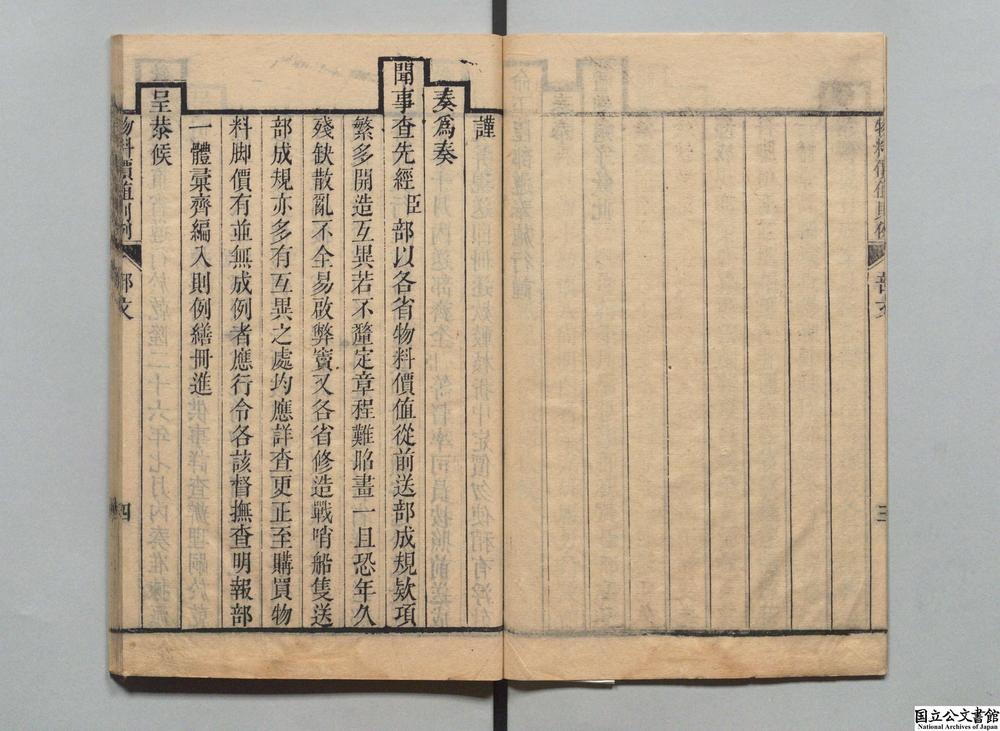 物料價值則例
部文
三
謹
奏爲奏
聞事查先經臣部以各省物料價值從前送部成規欵項
繁多開造互異若不釐定章程難昭畫一且恐年久
殘缺散亂不全易啟弊竇又各省修造戰哨船隻送
部成規亦多有互異之處均應詳查更正至購買物
料脚價有並無成例者應行令各該督撫查明報部
一體彚齊編入則例繕冊進
呈恭候
物料價值則例
部文
四
国立公文書館
National Archives of Japan